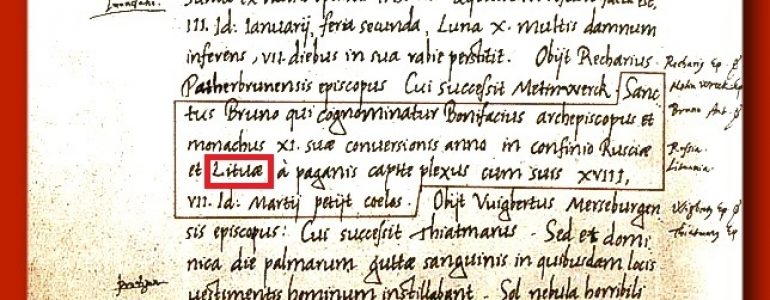 III. Id: Ianuarij, feria secunda, Luna X. multis damnum
inferens, VII. diebus in sua rabie perstitit. Obijt Recharius
Patherbrunensis episcopus Cui successit Metinwerck Sanc
tus Bruno qui cognominatur Bonifacius archepiscopus et
monachus XI. suæ conversionis anno in confinio Rusciæ
et Lituæ à paganis capite plexus cum suis XVIII,
VII. Id: Martij petijt coelos. Obijt Vuigbertus Merseburgen
sis episcopus: Cui successit Thiatmarus. Sed et domi
nica die palmarum guttæ sanguinis in quibusdam locis
uestimentis hominum instillabant. Sol nebula horribili
Ep
Ep
Bruno
Russia.
Lituania.
Ep
Ep